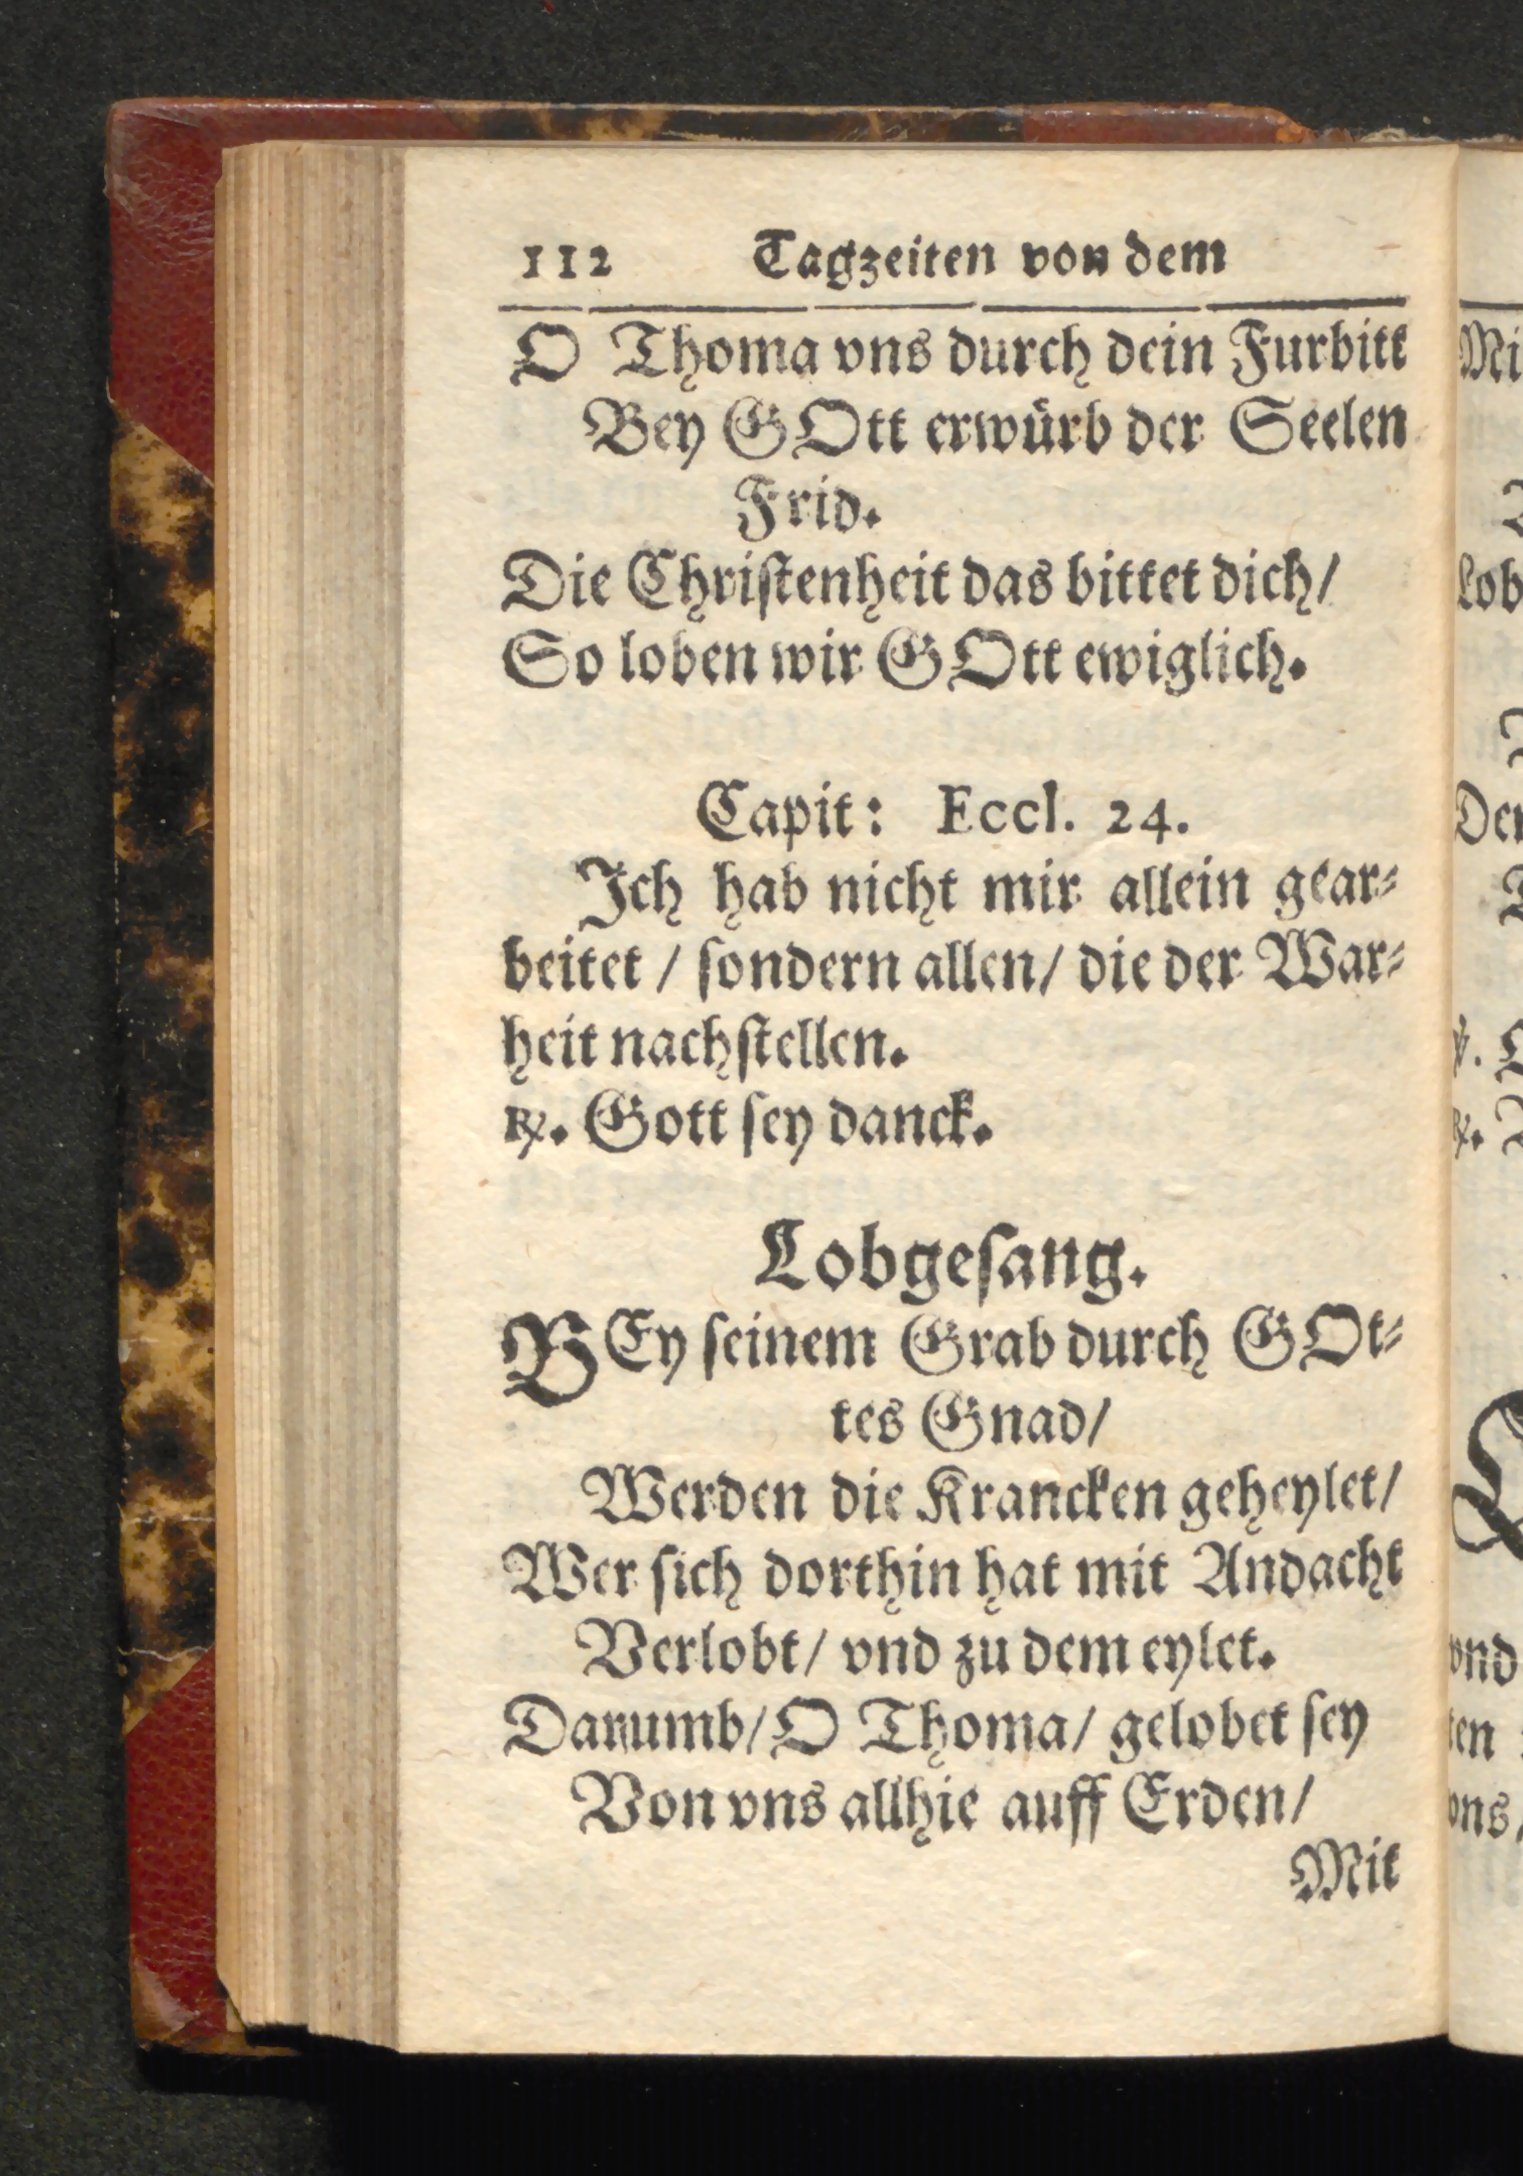 112 Tagzeiten von dem
O Thoma vns durch dein Furbitt
Bey GOtt erwürb der Seelen
Frid.
Die Christenheit das bittet dich/
So loben wir GOtt ewiglich.
Capit: Eccl. 24.
Ich hab nicht mir allein gear⸗
beitet / sondern allen/ die der War⸗
heit nachstellen.
℞. Gott sey danck.
Lobgesang.
BEy seinem Grab durch GOt⸗
tes Gnad/
Werden die Krancken geheylet/
Wer sich dorthin hat mit Andacht
Verlobt/ vnd zu dem eylet.
Darumb/ O Thoma/ gelobet sey
Von vns allhie auff Erden/
Mit